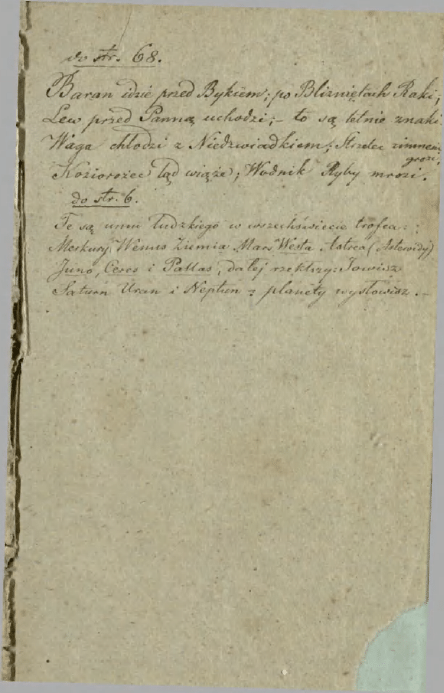 do str. 68.
Baran idzie przed Bykiem; po Bliźniętach Raki;
Lew przed Panną uchodzi; – to są letnie znaki
Waga chłodzi z Niedźwiadkiem; Strzelec zimnem
grozi,
Koziorożec ląd wiąże; Wodnik Ryby mrozi.
do str. 6.
Te są umu ludzkiego w wszechświecie trofea:
Merkury, Wenus Ziemia Mars Westa Astrea (Asteroidy)
Juno, Ceres i Pallas, dalej rzekłszy: Jowisz
Saturn Uran i Neptun – planety wysłowisz. –